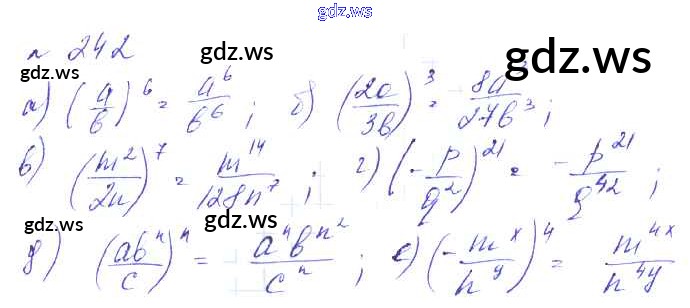 gdz.ws
№ 242 gdz.ws gdz.ws
gdz.ws
а) (a/b)^6 = a^6/b^6 ; б) (2a/3b)^3 = 8a^3/27b^3 ;
в) (m^2/2n)^7 = m^14/128n^7 ; г) (-p/q^2)^21 = -p^21/q^42 ;
gdz.ws gdz.ws
д) (ab^n/c)^n = a^n b^n^2/c^n ; е) (-m^x/n^y)^4 = m^4x/n^4y